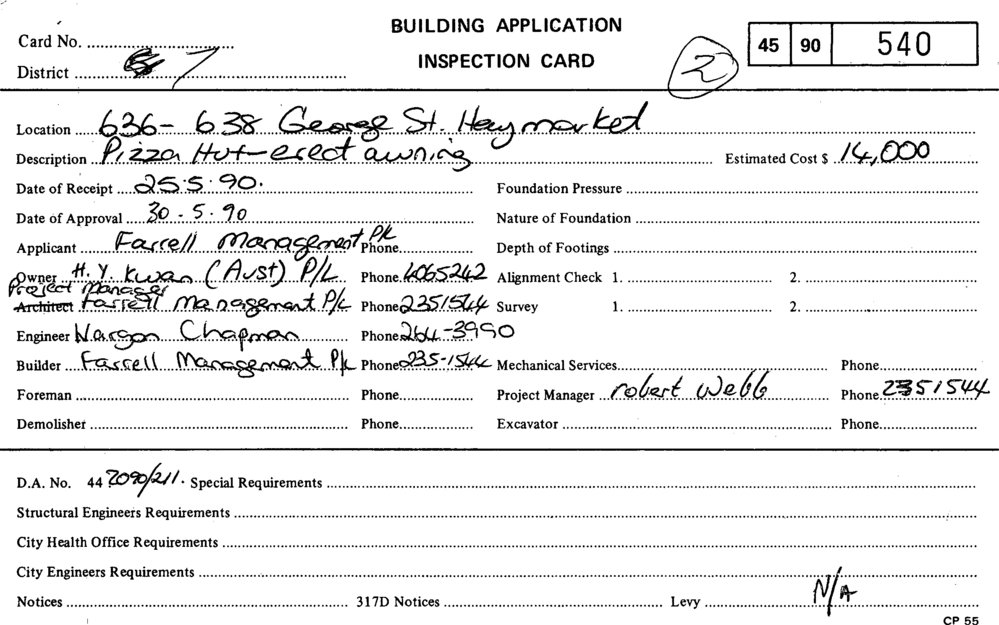 BUILDING APPLICATION
Card No. 45 90 540
INSPECTION CARD
2
District 7
Location 636 - 638 George St. Haymarket
Description Pizza Hut - erect awning Estimated Cost $ 14,000
Date of Receipt 25.5.90. Foundation Pressure
Date of Approval 30 - 5 - 90 Nature of Foundation
Applicant Farrell Management P/L Phone Depth of Footings
Owner H. Y. Kwan (Aust) P/L Phone 4065242 Alignment Check 1. 2.
Project Manager
Architect Farrell Management P/L Phone 2351544 Survey 1. 2.
Engineer Wargon Chapman Phone 264-3990
Builder Farrell Management P/L Phone 235-1544 Mechanical Services Phone
Foreman Phone Project Manager robert Webb Phone 2351544
Demolisher Phone Excavator Phone
D.A. No. 44 2090/211. Special Requirements
Structural Engineers Requirements
City Health Office Requirements
City Engineers Requirements
Notices 317D Notices Levy N/A
CP 55